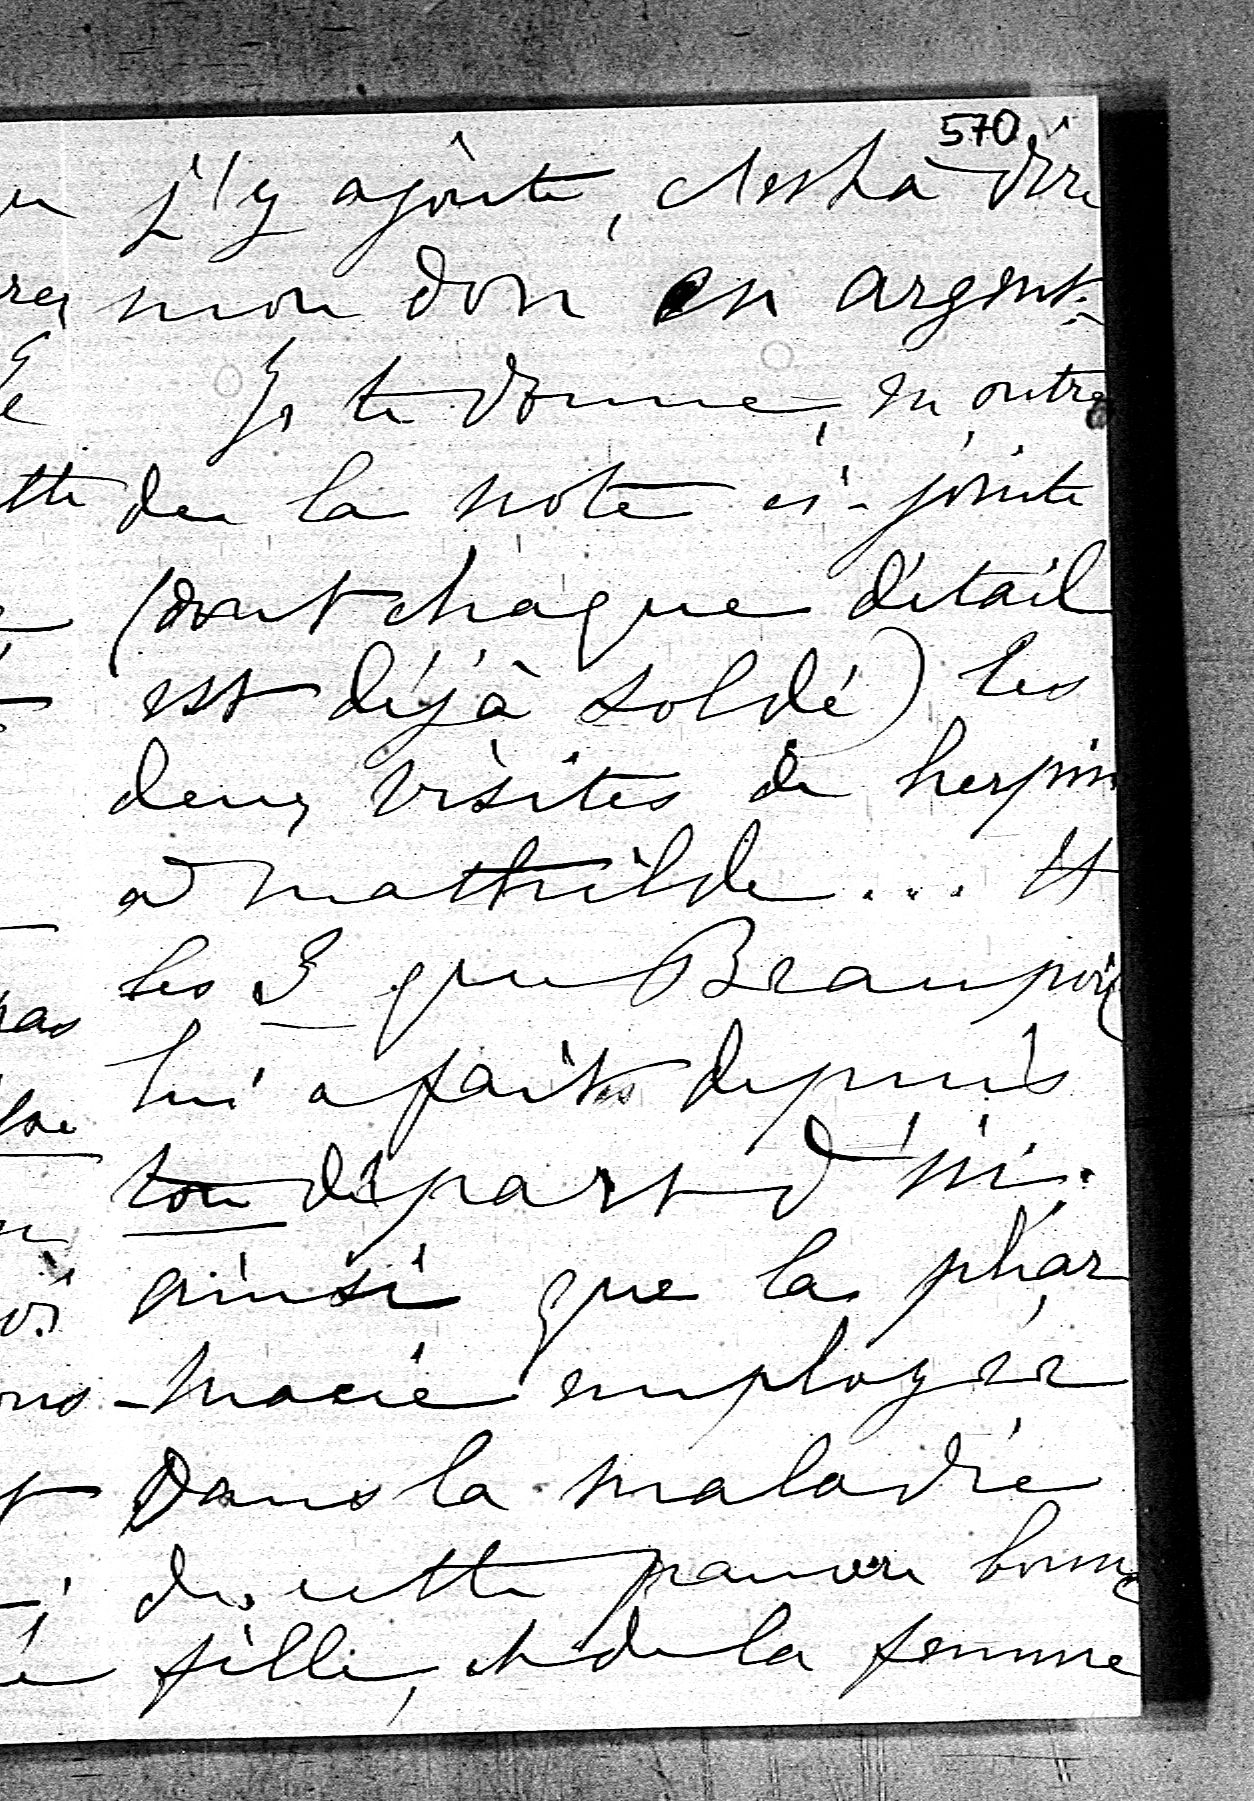 570
j'y ajoute, c'est à dire
mon don en argent.
Je te donne, en outre
de la note ci-jointe
(dont chaque détail
est déjà soldé) les
deux visites de herpin
à mathilde... Et
les 3 que Beaupoil
lui a faites depuis
ton départ d'ici.
ainsi que la phar
-macie employée
Dans la maladie
de cette pauvre bonne
fille, et de la femme